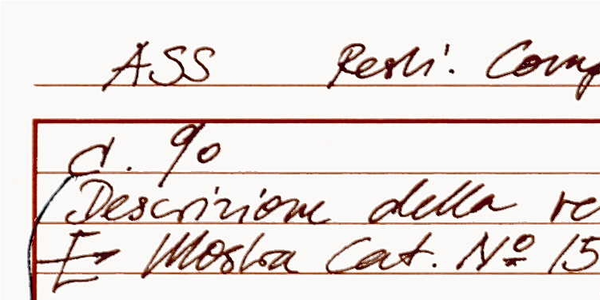 ASS Resti. Comp
c. 90
Descrizione della re
Mostra Cat. Nº 15